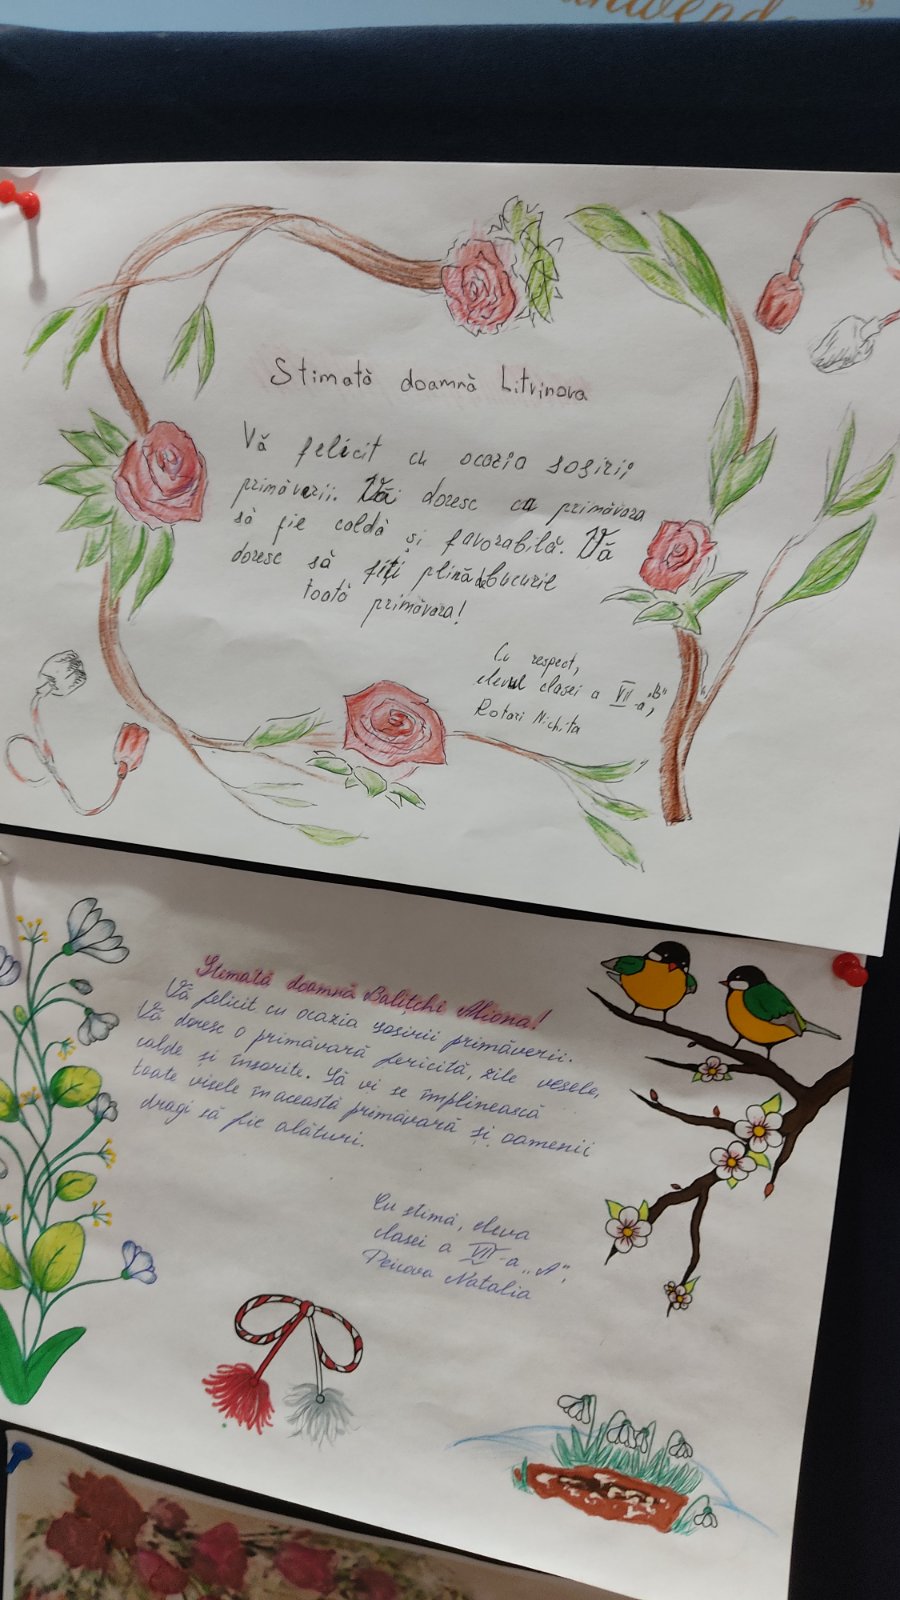 Stimată doamnă Litvinova
Vă felicit cu ocazia sosirii
primăverii. Vă doresc ca primăvara
să fie caldă și favorabilă. Vă
doresc să fiți plină de bucurie
toată primăvara!
Cu respect,
elevul clasei a VII-a „B”,
Rotari Nichita
Stimată doamnă Balițchi Aliona!
Vă felicit cu ocazia sosirii primăverii.
Vă doresc o primăvară fericită, zile vesele,
calde și însorite. Să vi se împlinească
toate visele în această primăvară și oamenii
dragi să fie alături.
Cu stimă, eleva
clasei a VII-a „A”,
Natalia